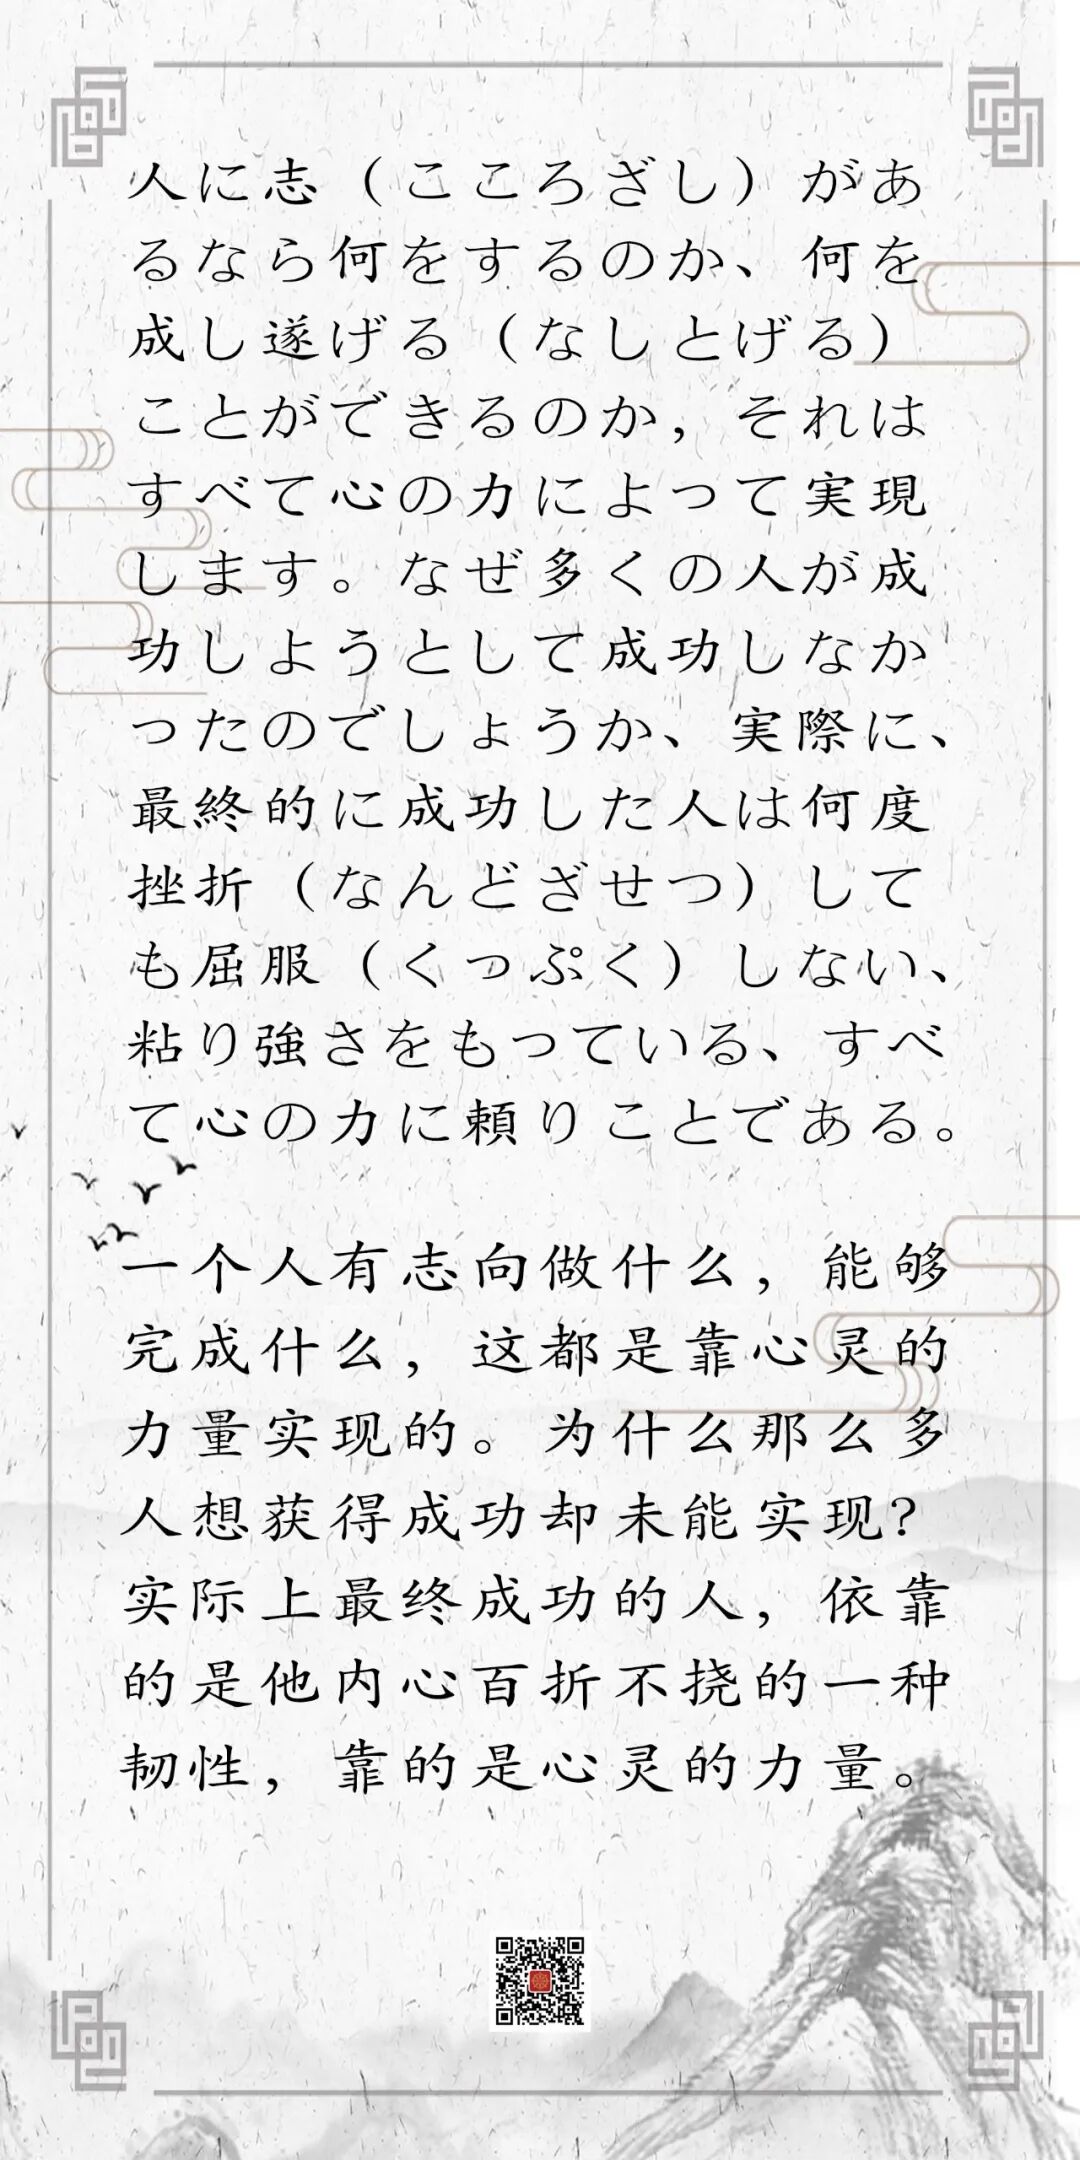 人に志（こころざし）があ
るなら何をするのか、何を
成し遂げる（なしとげる）
ことができるのか，それは
すべて心の力によって実現
します。なぜ多くの人が成
功しようとして成功しなか
ったのでしょうか、実際に、
最終的に成功した人は何度
挫折（なんどざせつ）して
も屈服（くっぷく）しない、
粘り強さをもっている、すべ
て心の力に頼りことである。
一个人有志向做什么，能够
完成什么，这都是靠心灵的
力量实现的。为什么那么多
人想获得成功却未能实现？
实际上最终成功的人，依靠
的是他内心百折不挠的一种
韧性，靠的是心灵的力量。